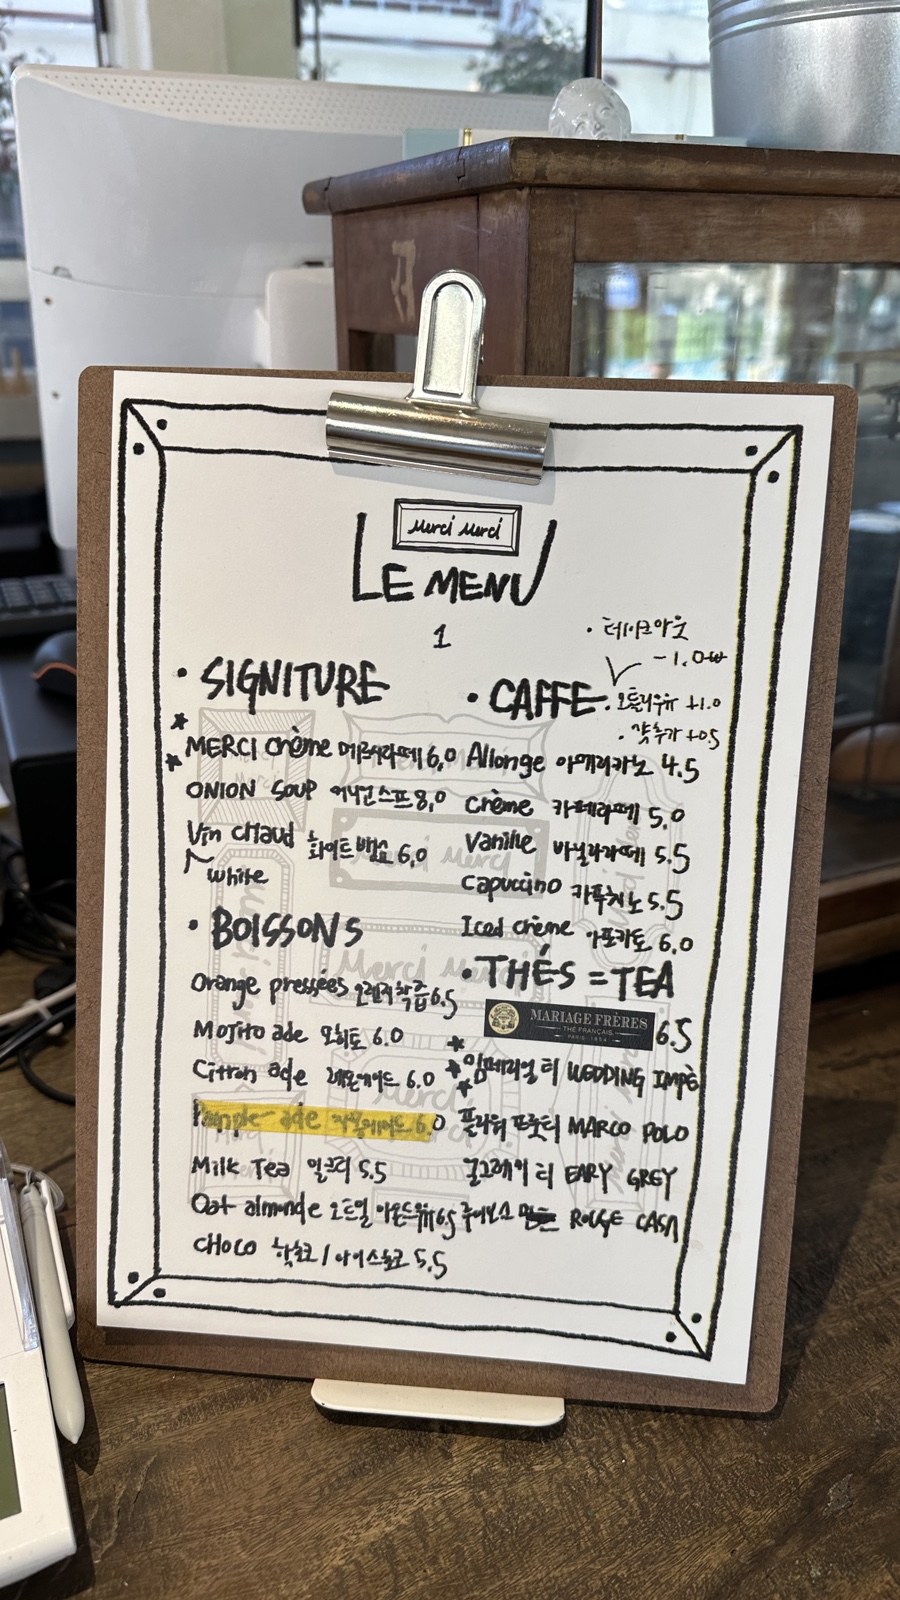 Merci Merci
LE MENU
1
• 테이크아웃
- 1.0₩
• SIGNITURE
MERCI crème 메르시라떼 6,0
ONION SOUP 어니언스프 8,0
Vin CHaud 화이트뱅쇼 6,0
white
• BOISSONS
Orange pressées 오렌지착즙 6.5
Mojito ade 모히토 6.0
Citron ade 레몬에이드 6.0
Pample ade 자몽에이드 6.0
Milk Tea 밀크티 5.5
Oat almonde 오트밀 아몬드우유 6.5
CHOCO 핫초코 / 아이스초코 5.5
• CAFFE
• 오틀리우유 +1.0
• 샷추가 +0.5
Allonge 아메리카노 4.5
crème 카페라떼 5.0
Vanille 바닐라라떼 5.5
capuccino 카푸치노 5.5
Iced crème 아포가토 6.0
• THÉS = TEA
MARIAGE FRÈRES
THÉ FRANÇAIS
PARIS 1854
6.5
임페리얼 티 WEDDING IMPÈ
MARCO POLO
얼그레이 티 EARY GREY
루이보스 ROUGE CASA